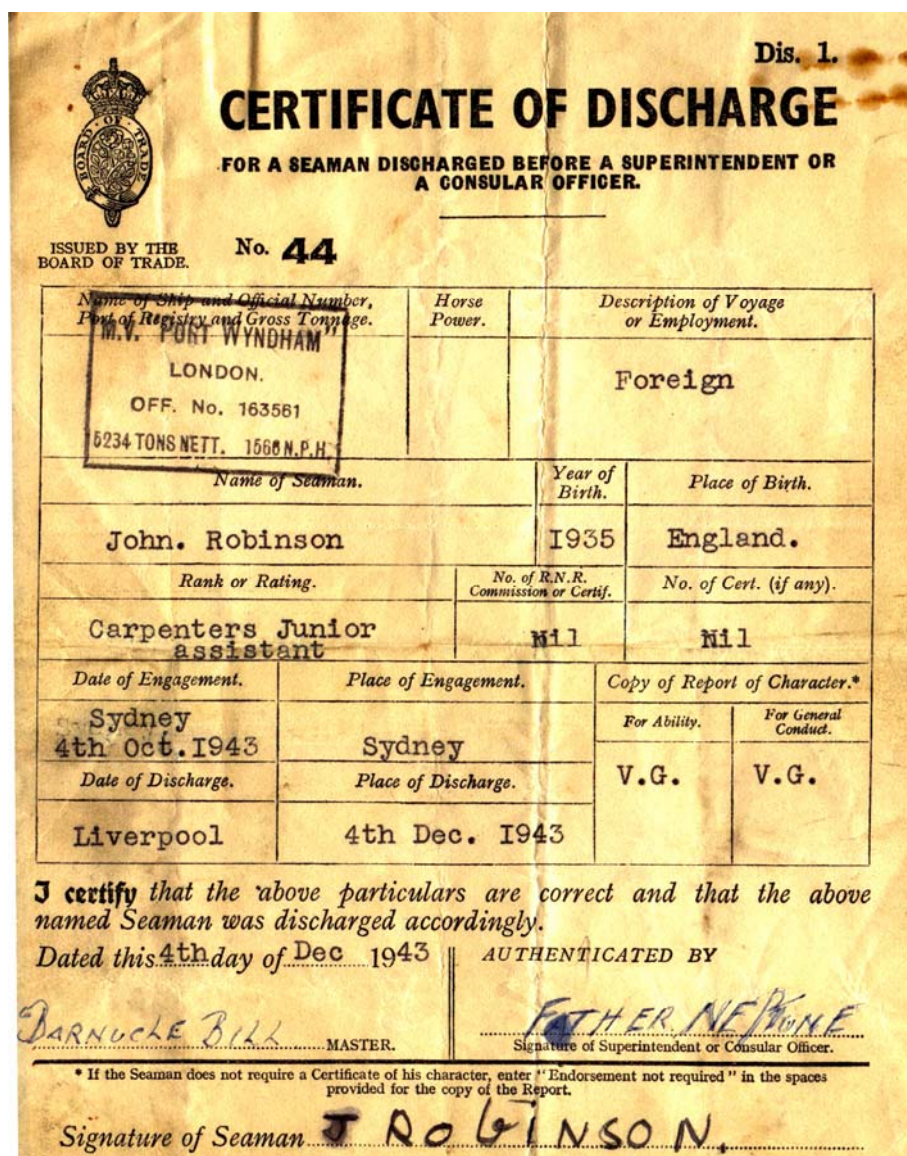 Dis. 1.
CERTIFICATE OF DISCHARGE
FOR A SEAMAN DISCHARGED BEFORE A SUPERINTENDENT OR
A CONSULAR OFFICER.
BOARD · OF · TRADE
ISSUED BY THE
BOARD OF TRADE.
No. 44
Name of Ship and Official Number,
Port of Registry and Gross Tonnage.
Horse
Power.
Description of Voyage
or Employment.
M.V. "PORT WYNDHAM"
LONDON.
OFF. No. 163561
5234 TONS NETT. 1566 N.P.H.
Foreign
Name of Seaman.
Year of
Birth.
Place of Birth.
John. Robinson
I935
England.
Rank or Rating.
No. of R.N.R.
Commission or Certif.
No. of Cert. (if any).
Carpenters Junior
assistant
Nil
Nil
Date of Engagement.
Place of Engagement.
Copy of Report of Character.*
Sydney
4th Oct.I943
Sydney
For Ability.
For General
Conduct.
V.G.
V.G.
Date of Discharge.
Place of Discharge.
Liverpool
4th Dec. I943
I certify that the above particulars are correct and that the above
named Seaman was discharged accordingly.
Dated this 4th day of Dec 1943
AUTHENTICATED BY
BARNUCLE BILL MASTER.
FATHER NEPTUNE
Signature of Superintendent or Consular Officer.
* If the Seaman does not require a Certificate of his character, enter "Endorsement not required" in the spaces
provided for the copy of the Report.
Signature of Seaman J ROBINSON.